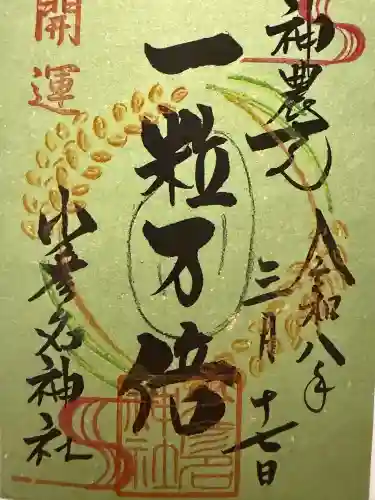 神農
令和八年
三月十七日
一粒万倍
開運
少彦名神社
少彦名
神社